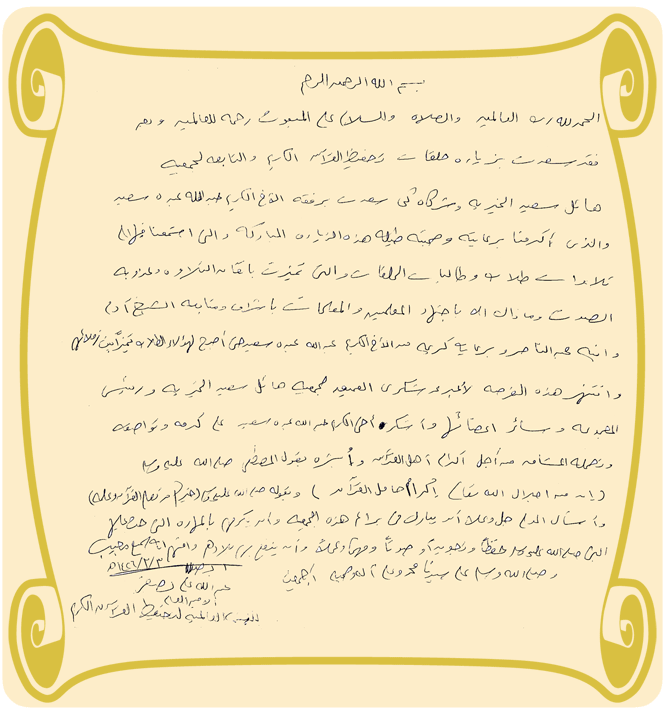 بسم الله الرحمن الرحيم
الحمد لله رب العالمين والصلاة والسلام على المبعوث رحمة للعالمين وبعد
فقد سعدت بزيارة حلقات تحفيظ القرآن الكريم والتابعة لجمعية
هائل سعيد الخيرية وشركاه كما سعدت برفقة الأخ الكريم عبدالله عبده سعيد
والذي أكرمنا برعايته وصحبته طيلة هذه الزيارة المباركة والتي استمعنا فيها إلى
تلاوات طلاب وطالبات الحلقات والتي تميزت باتقان التلاوة وعذوبة
الصوت وما ذاك إلا باجتهاد المعلمين والمعلمات باشراف ومتابعة الشيخ آدم
وابنه عبد الناصر وبرعاية كريمة من الأخ الكريم عبد الله عبده سعيد حتى أصبح لهؤلاء الطلاب تميزاً بين زملائهم
وانتهز هذه الفرصة لأعبر عن شكري العميق لجمعية هائل سعيد الخيرية ورئيس
الجمعية وسائر أعضائها وأشكر أخي الكريم عبد الله عبده سعيد على كرمه وتواضعه
وتحمله المشاق من أجل اكرام أهل القرآن وأبشره بقول المصطفى صلى الله عليه وسلم
(إن من اجلال الله تعالى إكرام حامل القرآن) وبقوله صلى الله عليه وسلم (خيركم من تعلم القرآن وعلمه)
وأسأل المولى جل وعلا أن يبارك في برامج هذه الجمعية وأن يكرمهم بالمهارة التي حث عليها
النبي صلى الله عليه وسلم حفظاً وتجويداً وصوتاً وفهماً وعملاً وأن ينفع بهم بلادهم وأمتهم إنه سميع مجيب
وصلى الله وسلم على سيدنا محمد وعلى آله وصحبه أجمعين
١٤٢٦/٢/٣هـ
عبد الله علي بصفر
الأمين العام
للهيئة العالمية لتحفيظ القرآن الكريم